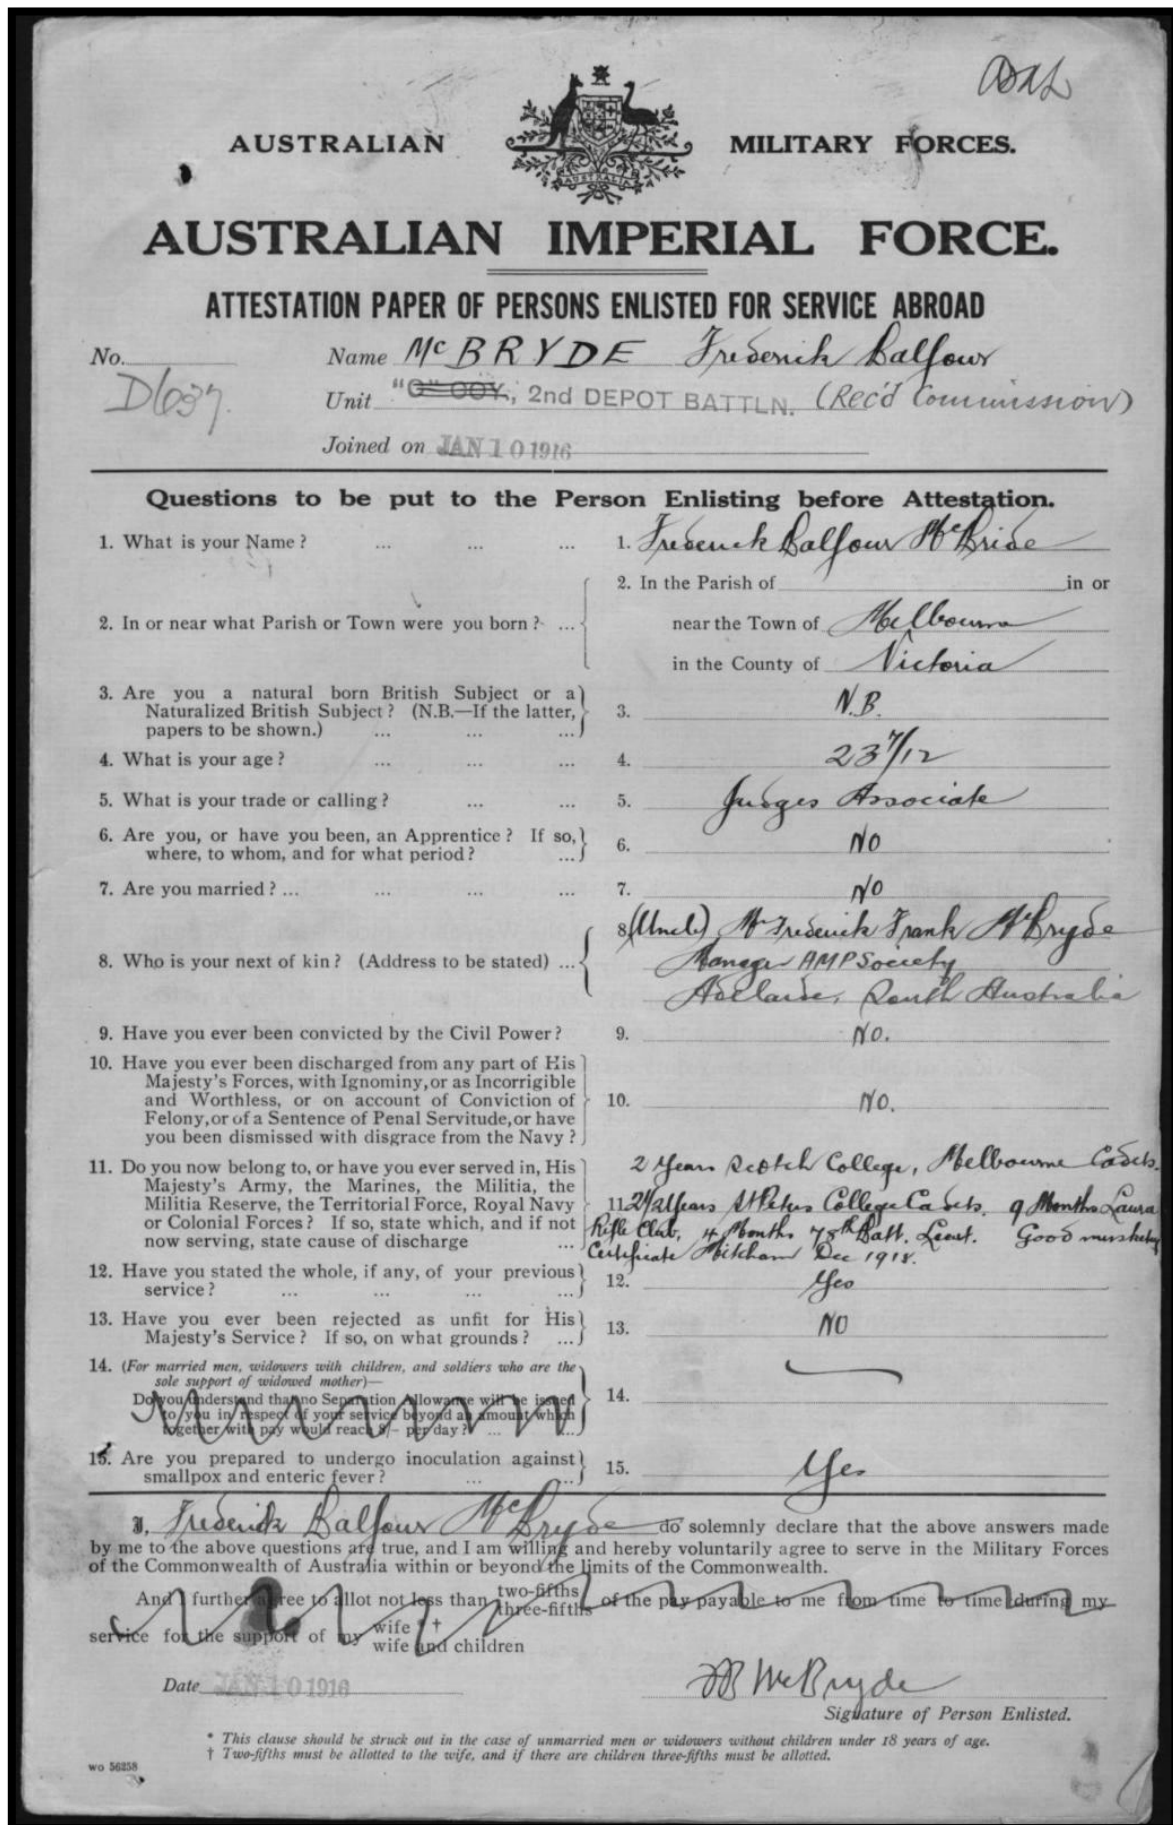 AUSTRALIAN MILITARY FORCES.
AUSTRALIA
AUSTRALIAN IMPERIAL FORCE.
ATTESTATION PAPER OF PERSONS ENLISTED FOR SERVICE ABROAD
No. Name McBRYDE Frederick Balfour
D637. Unit "O" COY., 2nd DEPOT BATTLN. (Rec'd Commission)
Joined on JAN 10 1916
Questions to be put to the Person Enlisting before Attestation.
1. What is your Name? ... ... ... 1. Frederick Balfour McBride
2. In the Parish of in or
2. In or near what Parish or Town were you born? ... near the Town of Melbourne
in the County of Victoria
3. Are you a natural born British Subject or a
Naturalized British Subject? (N.B.—If the latter, 3. N.B.
papers to be shown.) ... ... ...
4. What is your age? ... ... ... 4. 23 7/12
5. What is your trade or calling? ... ... 5. Judges Associate
6. Are you, or have you been, an Apprentice? If so, 6. NO
where, to whom, and for what period? ...
7. Are you married? ... ... ... ... 7. NO
8. (Uncle) Mr Frederick Frank McBryde
8. Who is your next of kin? (Address to be stated) ... Manager AMP Society
Adelaide, South Australia
9. Have you ever been convicted by the Civil Power? 9. NO.
10. Have you ever been discharged from any part of His
Majesty's Forces, with Ignominy, or as Incorrigible
and Worthless, or on account of Conviction of 10. NO.
Felony, or of a Sentence of Penal Servitude, or have
you been dismissed with disgrace from the Navy?
11. Do you now belong to, or have you ever served in, His 2 Years Scotch College, Melbourne Cadets.
Majesty's Army, the Marines, the Militia, the
Militia Reserve, the Territorial Force, Royal Navy 11. 2½ Years St Peters College Cadets. 9 Months Laura
or Colonial Forces? If so, state which, and if not Rifle Club, 4 Months 78th Batt. Lieut. Good musketry
now serving, state cause of discharge ... Certificate Mitcham Dec 1918.
12. Have you stated the whole, if any, of your previous 12. Yes
service? ... ... ... ...
13. Have you ever been rejected as unfit for His 13. NO
Majesty's Service? If so, on what grounds? ...
14. (For married men, widowers with children, and soldiers who are the
sole support of widowed mother)—
Do you understand that no Separation Allowance will be issued 14.
to you in respect of your service beyond an amount which
together with pay would reach 8/- per day? ... ...
15. Are you prepared to undergo inoculation against 15. Yes
smallpox and enteric fever? ... ...
I, Frederick Balfour McBryde do solemnly declare that the above answers made
by me to the above questions are true, and I am willing and hereby voluntarily agree to serve in the Military Forces
of the Commonwealth of Australia within or beyond the limits of the Commonwealth.
And I further agree to allot not less than two-fifths three-fifths of the pay payable to me from time to time during my
service for the support of my wife * † wife and children
Date JAN 10 1916 FB McBryde
Signature of Person Enlisted.
* This clause should be struck out in the case of unmarried men or widowers without children under 18 years of age.
† Two-fifths must be allotted to the wife, and if there are children three-fifths must be allotted.
WO 56258